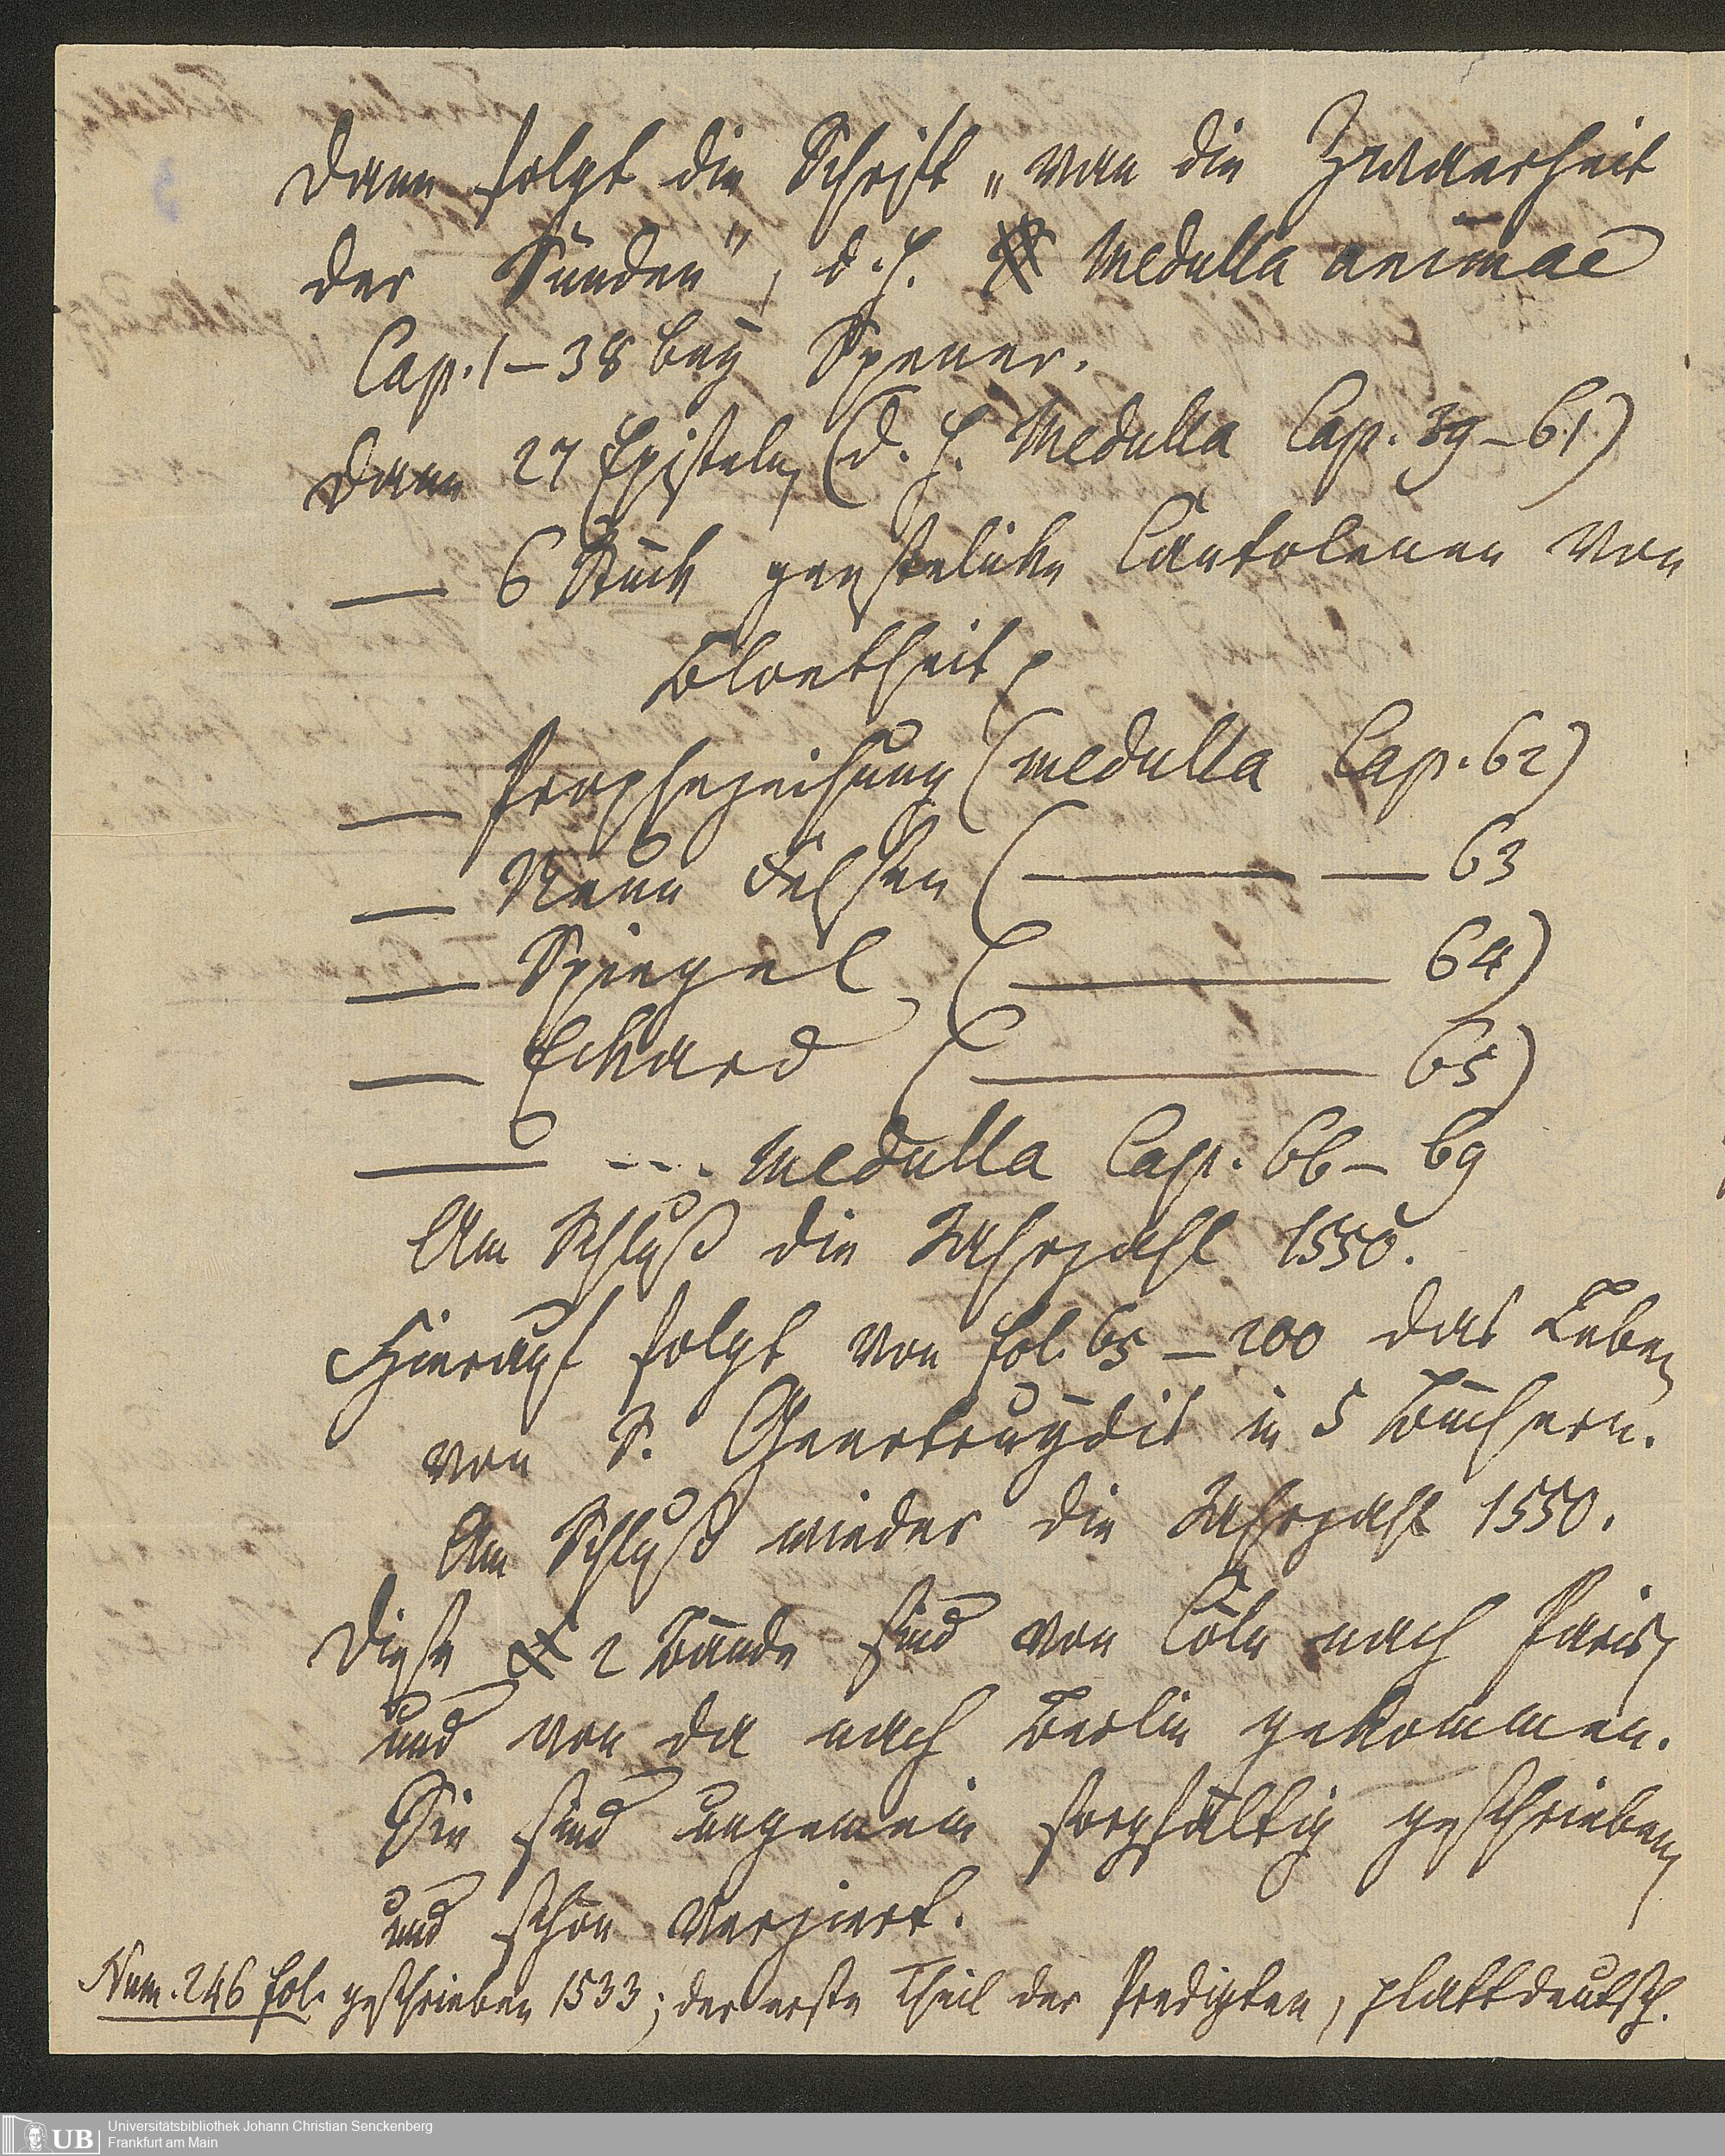 Dann folgt die Schrift „van die Zwaerheit
der Sunden", d. h. Medulla animae
Cap. 1–38 bey Spener.
Dann 27 Episteln (d. h. Medulla Cap. 39–61)
— 6 Stück geestelicke Cantolenen von
Bloetheit
— Prophezeihung (medulla Cap. 62)
— Neun Felsen (— — 63
— Spiegel (— 64)
— Eckard (— 65)
— .... Medulla Cap. 66–69
Am Schluß die Jahrzahl 1550.
Hierauf folgt von fol. 65–200 das Leben
von S. Geertruydis in 5 Büchern.
Am Schluß wieder die Jahrzahl 1550.
Diese 2 Bände sind von Cöln nach Paris
und von da nach Berlin gekommen.
Sie sind ungemein sorgfältig geschrieben
und schön verziert.
Num. 246 fol. geschrieben 1533; der erste Theil der Predigten, plattdeutsch.
UB
Universitätsbibliothek Johann Christian Senckenberg
Frankfurt am Main